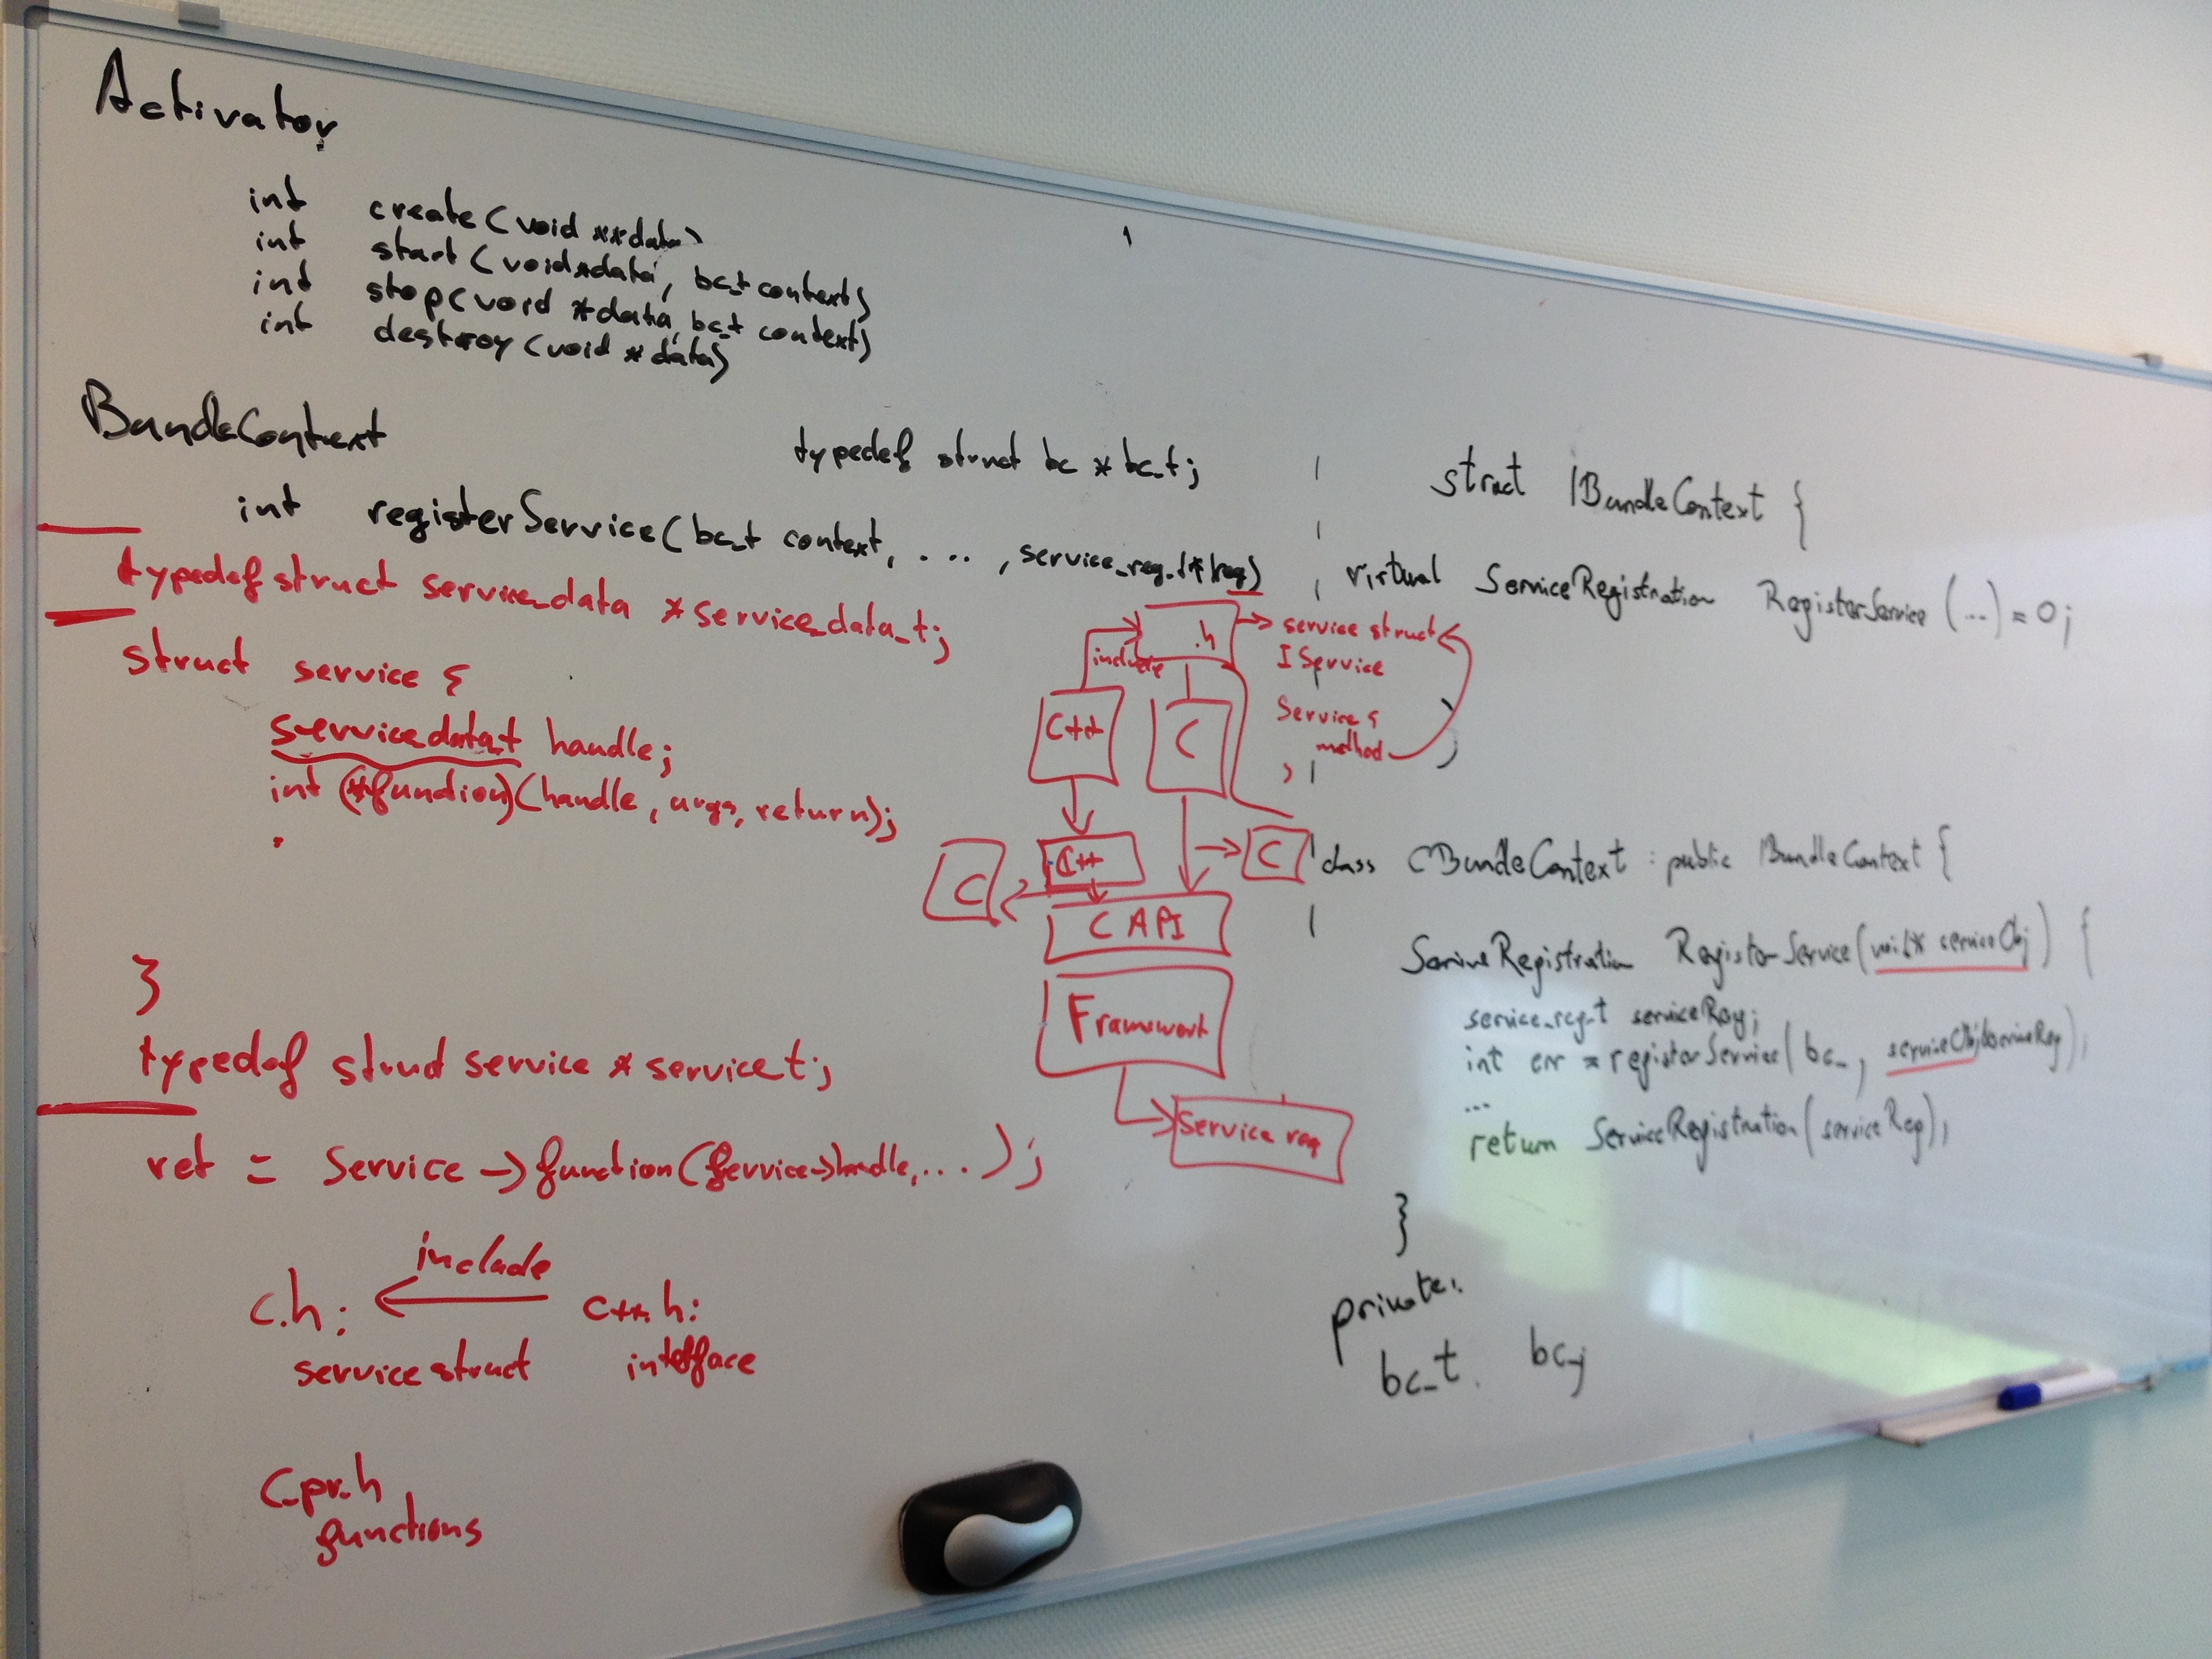 Activator
int create(void **data)
int start(void *data, bc_t context)
int stop(void *data, bc_t context)
int destroy(void *data)
BundleContext
typedef struct bc * bc_t;
int registerService(bc_t context, ... , service_reg_t * reg)
typedef struct service_data *service_data_t;
struct service {
service_data_t handle;
int (*function)(handle, args, return);
}
typedef struct service * service_t;
ret = Service->function(service->handle, ...);
include
c.h: c++.h:
service struct interface
C_pr.h
functions
.h
include
service struct
IService
Service {
method
}
C++
C
C++
C
C
C API
Framework
Service reg
struct IBundleContext {
virtual ServiceRegistration RegisterService (...) = 0;
}
class CBundleContext : public IBundleContext {
ServiceRegistration RegisterService (void* serviceObj) {
service_reg_t serviceReg;
int err = registerService( bc_, serviceObj, &serviceReg);
...
return ServiceRegistration(serviceReg);
}
private:
bc_t bc_;